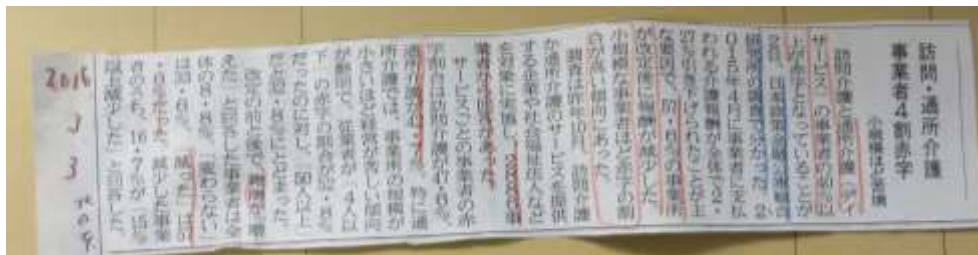 訪問・通所介護
事業者4割赤字
小規模ほど苦境
訪問介護と通所介護(デイ
サービス)の事業者の40%以
上が赤字となっていることが
2日、日本政策金融公庫総合
研究所の調査で分かった。2
015年4月に事業者に支払
われる介護報酬が全体で2・
27%引き下げられたことが主
な要因で、57・6%の事業所
が改定後に報酬が減少した。
小規模な事業者ほど赤字の割
合が高い傾向にあった。
調査は昨年10月、訪問介護
な通所介護のサービスを提供
する企業や社会福祉法人など
を対象に実施し、
業者から回答があった。
サービスごとの事業者の赤
字割合は訪問介護が47・6%、
通所介護が
特に通
所介護では、事業所の規模が
小さいほど経営が苦しい傾向
が顕著で、従業者が「4人以
下」の赤字の割合が
だったのに対し、「50人以上」
だと
にとどまった。
改定の前と後で、
が「増
えた」と回答した事業者は全
体の8・8%。「変わらない」
は30・6%、「減った」は57
・6%だった。減少した事業
者のうち、16・7%が「15%
以上減少した」と回答した。
2016
3
3